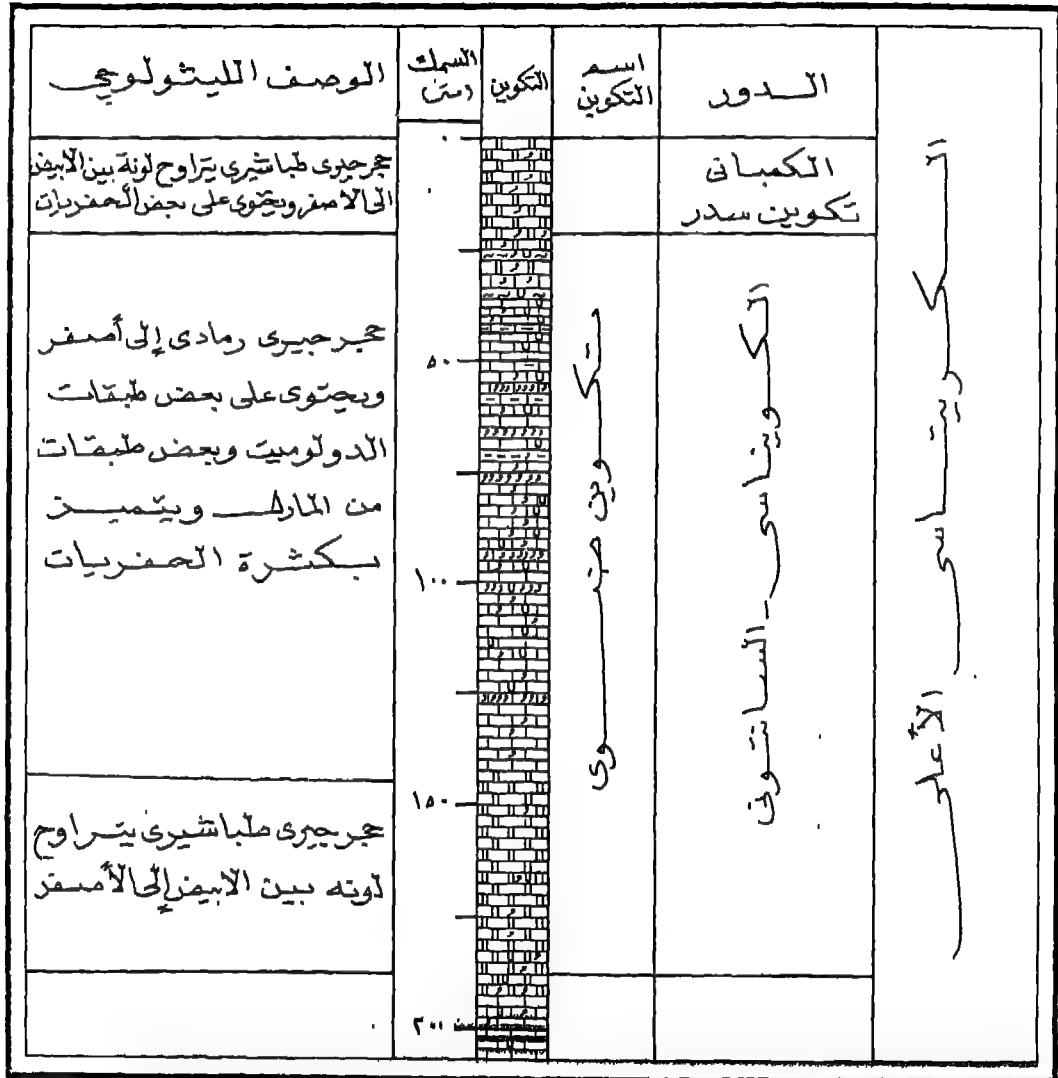 الدور
اسم
التكوين
التكوين
السمك
(متر)
الوصف الليثولوجي
الكريتاسى الأعلى
الكمبانى
تكوين سدر
حجر جيرى طباشيرى يتراوح لونة بين الابيض
الى الاصفر ويحتوى على بعض الحفريات
الكونياسى - السانتونى
حجر جيرى رمادى إلى أصفر
ويحتوى على بعض طبقات
الدولوميت وبعض طبقات
من المارل ويتميز
بكثرة الحفريات
حجر جيرى طباشيرى يتراوح
لونه بين الابيض إلى الأصفر
٠
٥٠
١٠٠
١٥٠
٢٠٠